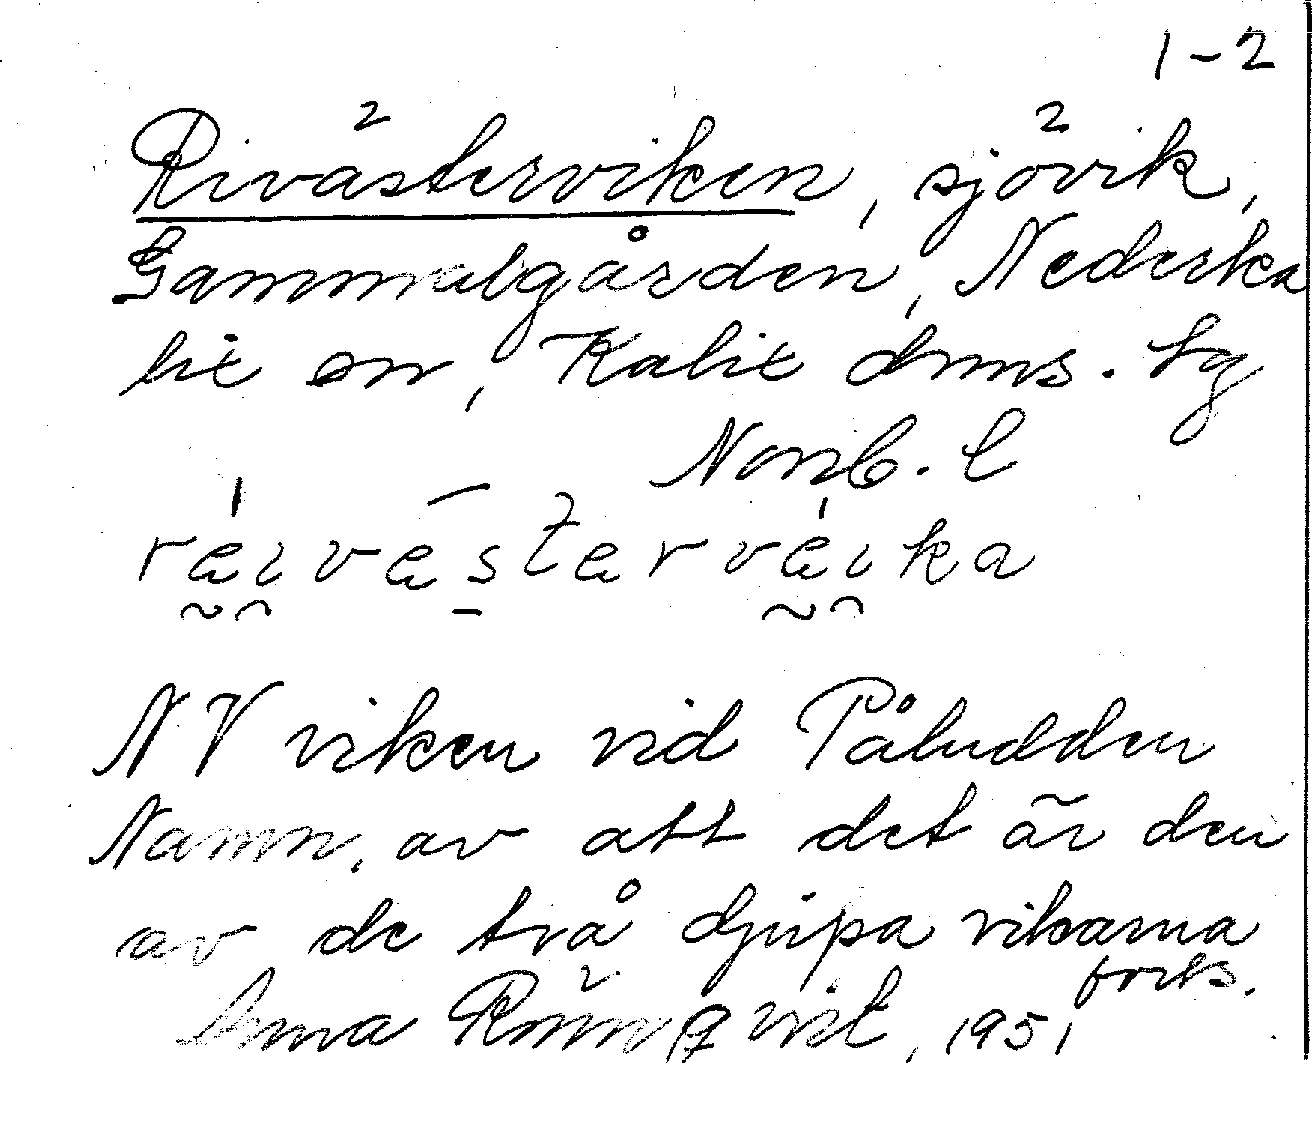 1-2
Rivästerviken, sjövik,
Gammalgården, Nederka
lix sn, Kalix dmns. tg
Norrb. l
NV viken vid Påludden
Namn. av att det är den
av de två djupa vikarna
forts.
Anna Rönnqvist, 1951